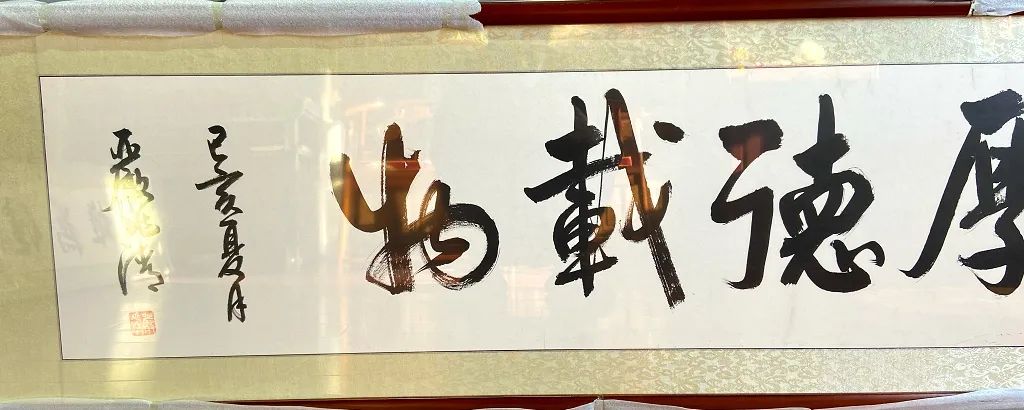 厚德载物
己亥夏月